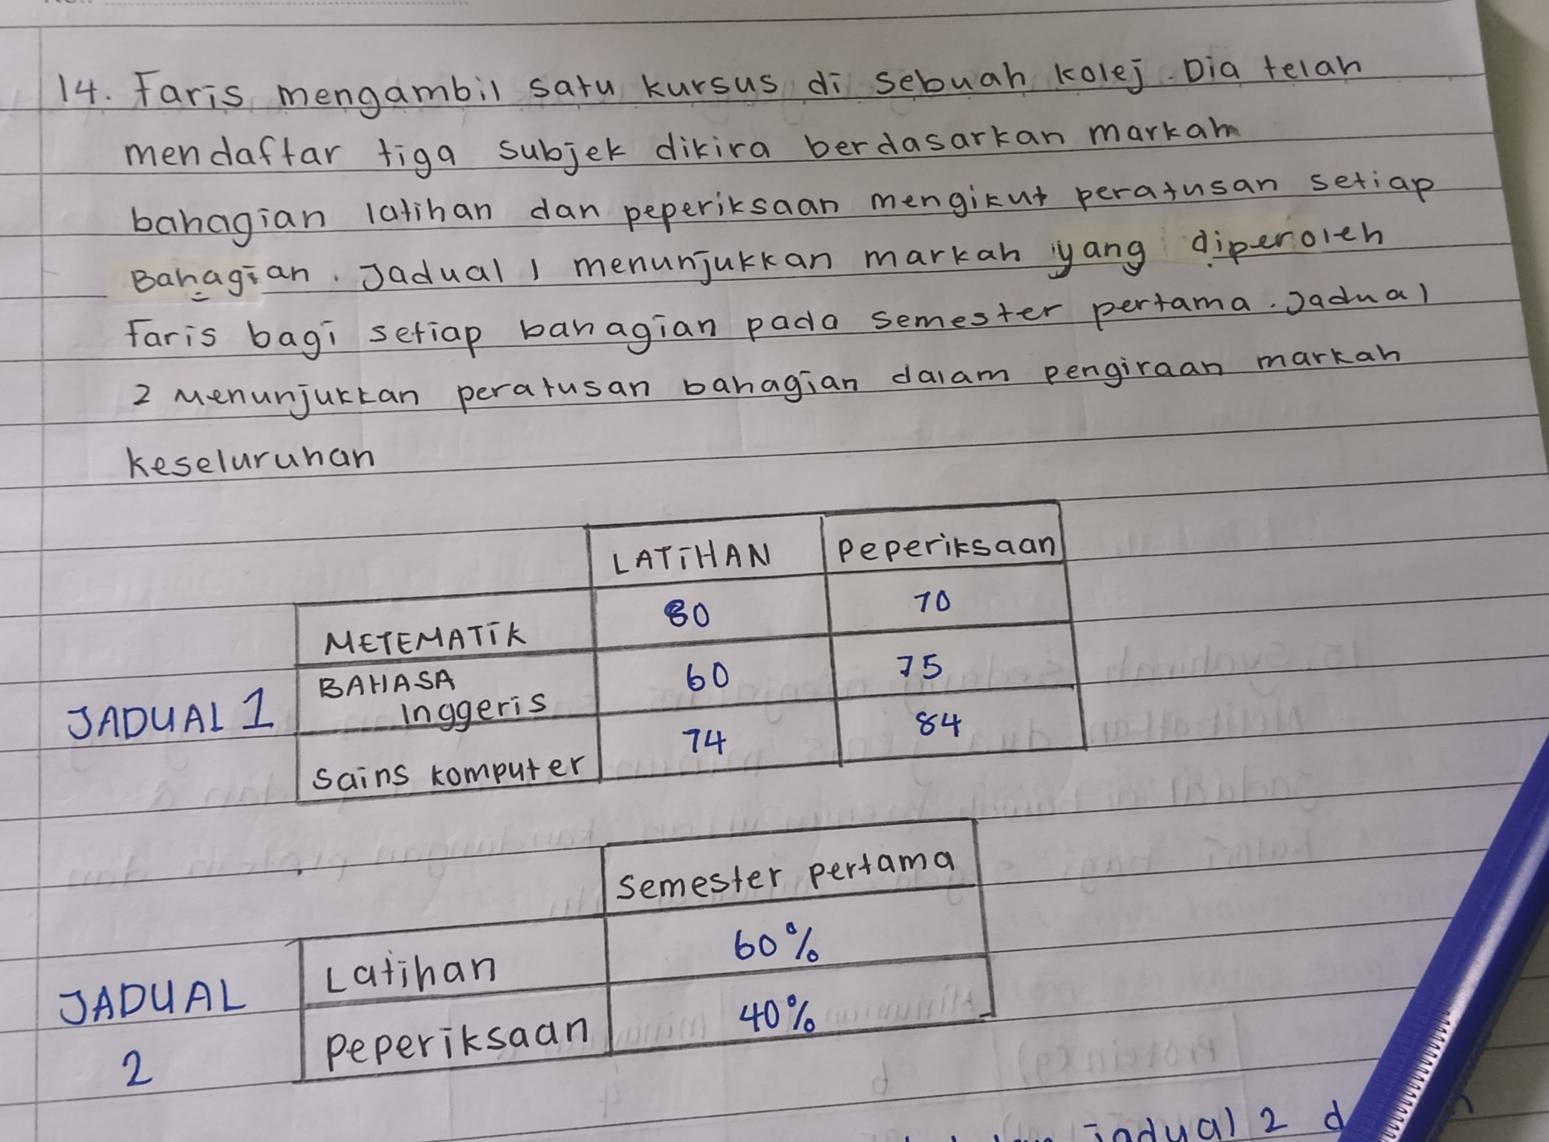 14. Faris mengambil satu kursus di sebuah kolej. Dia telah
mendaftar tiga subjek dikira berdasarkan markah
bahagian latihan dan peperiksaan mengikut peratusan setiap
Bahagian. Jadual 1 menunjukkan markah yang diperoleh
Faris bagi setiap bahagian pada semester pertama. Jadual
2 Menunjukkan peratusan bahagian dalam pengiraan markah
keseluruhan
LATiHAN Peperiksaan
METEMATiK 80 70
BAHASA
Inggeris 60 75
Sains komputer 74 84
JADUAL 1
Semester pertama
Latihan 60%
Peperiksaan 40%
JADUAL
2
jadual 2 d